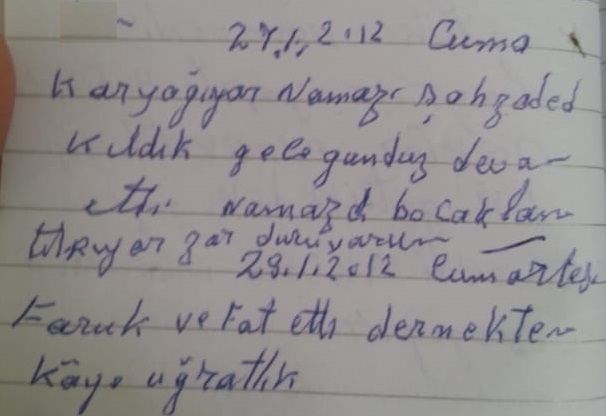 27.1.2012 Cuma
Karyağıyor Namazı Şahzaded
Kıldık gelegunduz deva
etti Namazd bacaklam
titriyor zar duruyorum
28.1.2012 Cumartesi
Faruk vefat etti dernekten
Köye uğratlık